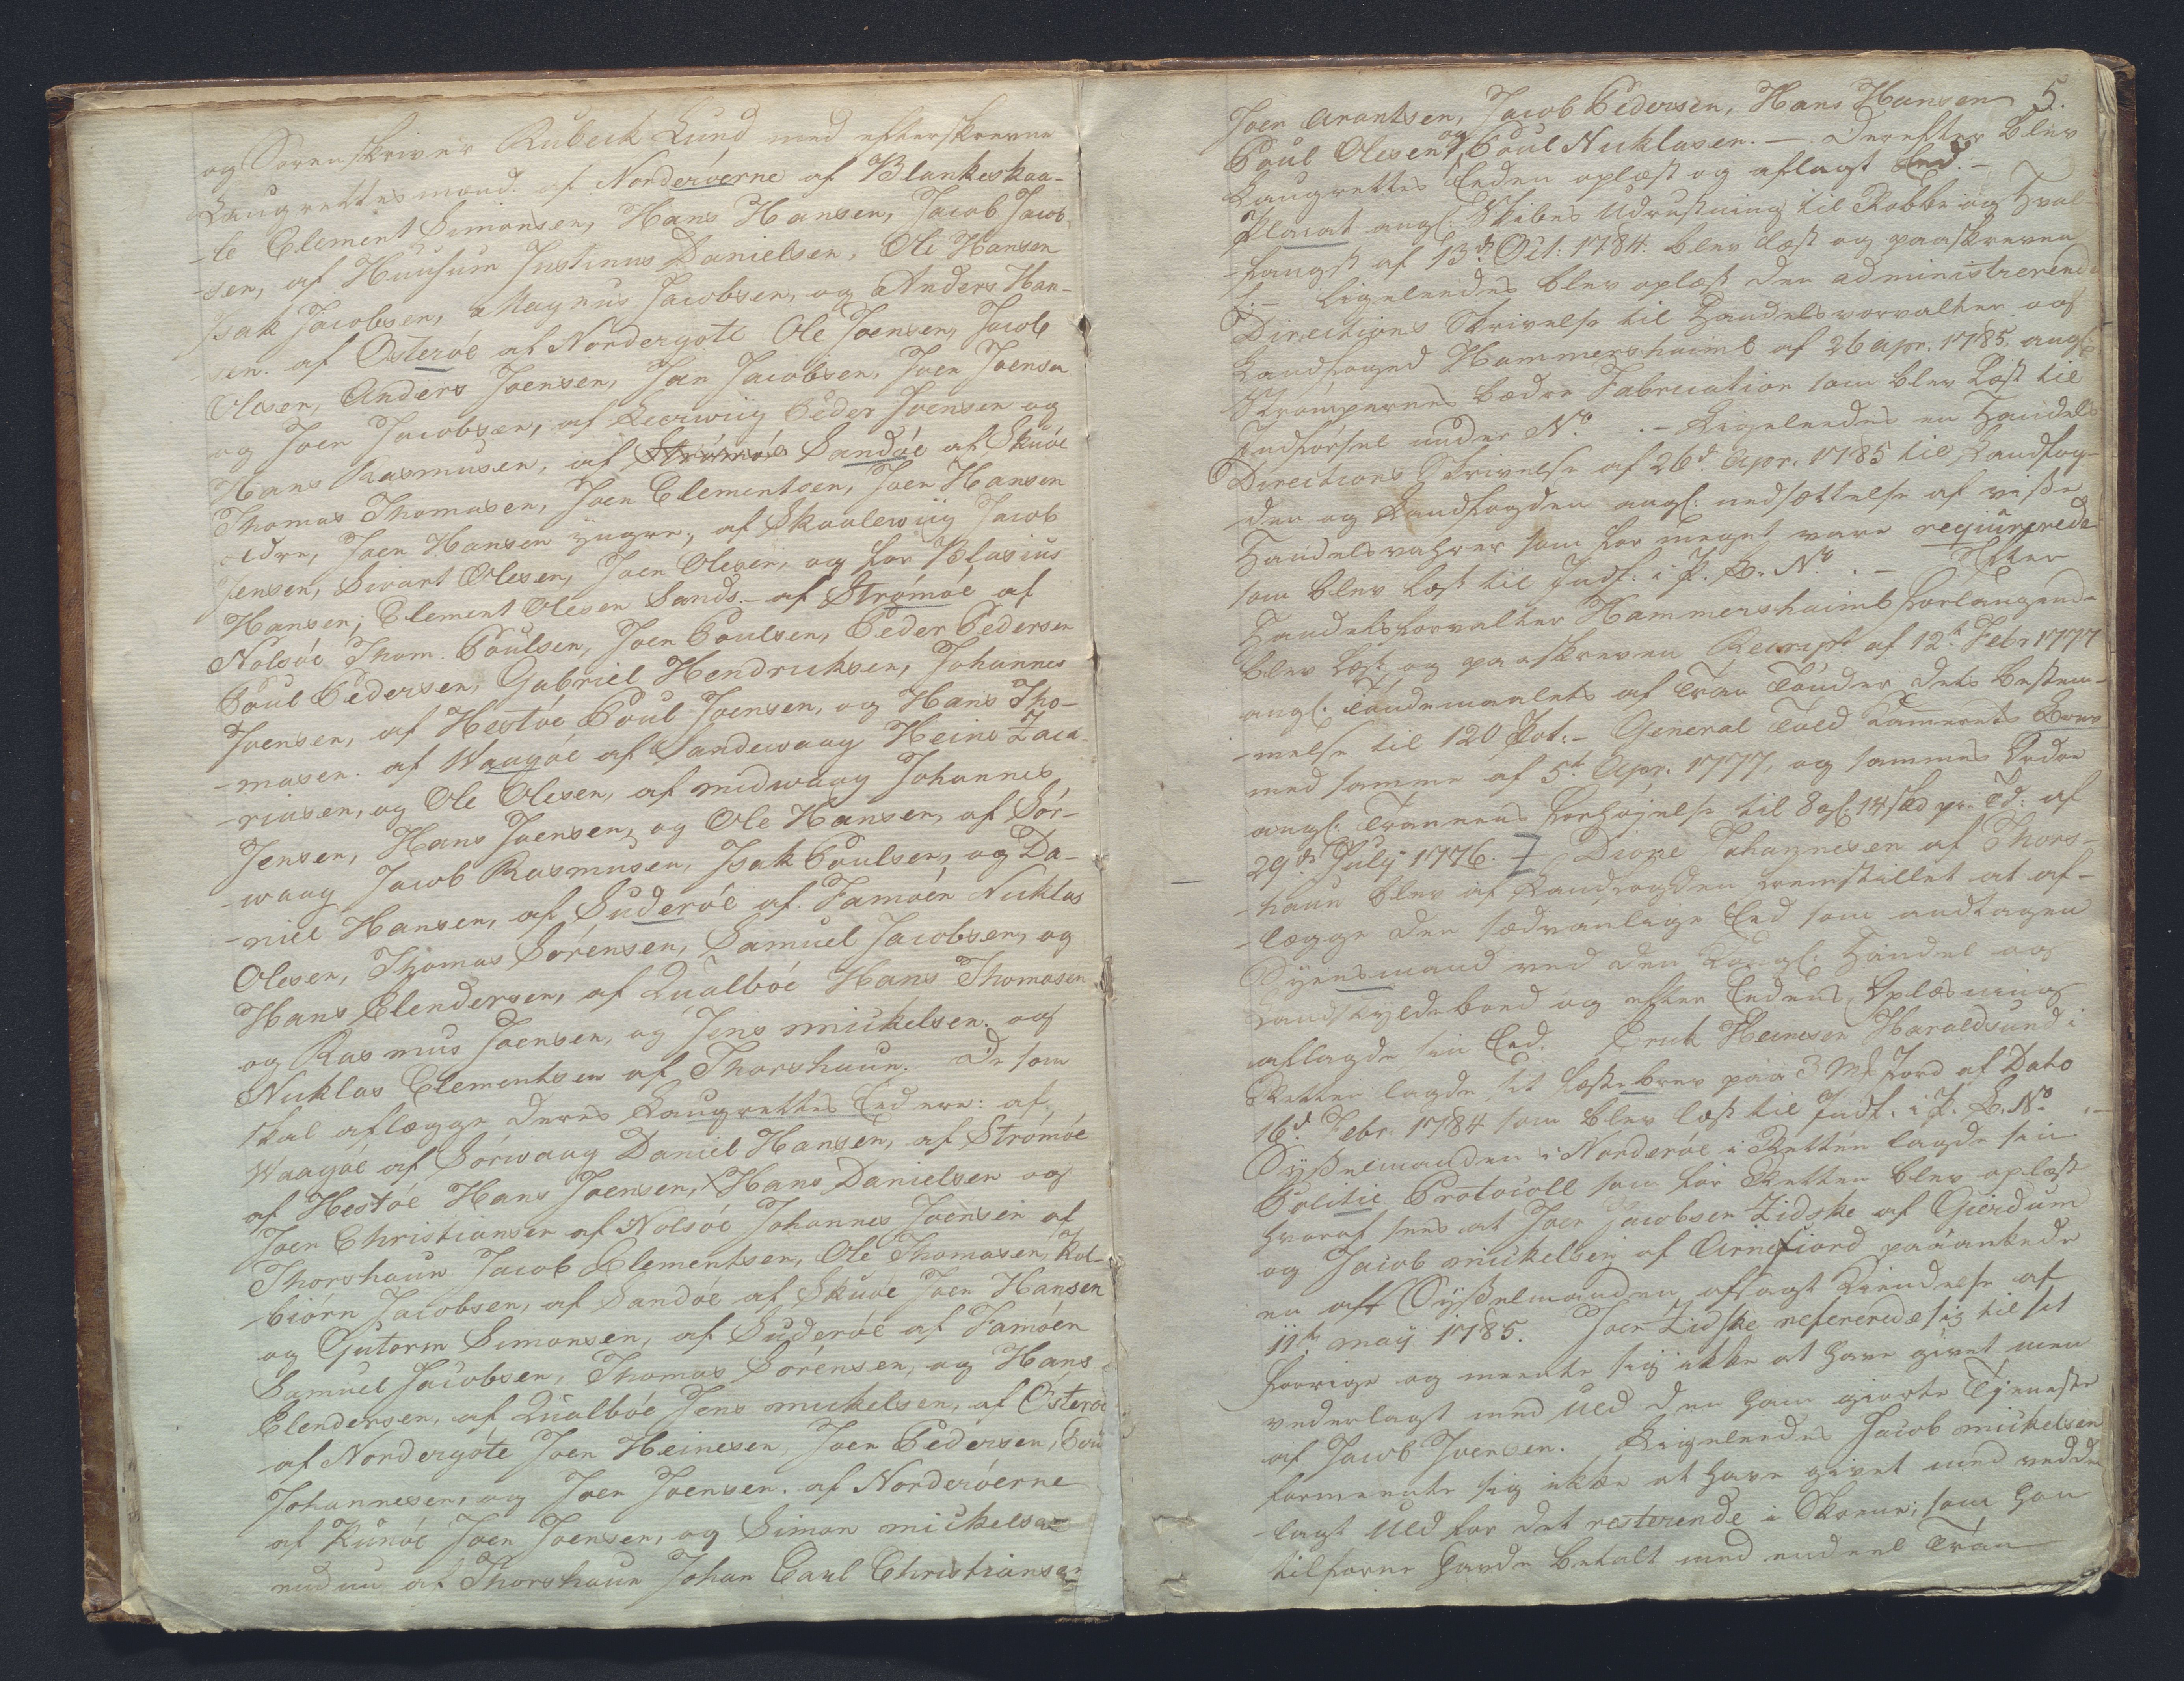 og Sorenskriver Rubech Lund med efterskrevne
Laugrettesmænd. af Norderöerne af Blankeskaa-
-le Clement Simonsen, Hans Hansen, Jacob Jacob-
-sen, af Huusum Justinus Danielsen, Ole Hansen
Isak Jacobsen, Magnus Jacobsen, og Anders Han-
sen. af Österöe af Nordergöte Ole Joensen, Jacob
Olesen, Anders Joensen, Jan Jacobsen, Joen Joensen
og Joen Jacobsen, af Leerwiig Peder Joensen og
Hans Rasmusen, af Strömöe Sandöe af Skuöe
Thomas Thomasen, Joen Clementsen, Joen Hansen
ældre, Joen Hansen yngre, af Skaalewiig Jacob
Jensen, Sivart Olesen, Joen Olesen, og for Blasius
Hansen; Clement Olesen Sands. - af Strömöe af
Nolsöe Thom. Poulsen, Joen Poulsen, Peder Pedersen
Poul Pedersen, Gabriel Hendrichsen, Johannes
Joensen, af Hestöe Poul Joensen, og Hans Tho-
-masen. af Waagöe af Sandewaag Heine Zaca-
-riasen, og Ole Olesen, af midwaag Johannes
Jensen, Hans Joensen, og Ole Hansen, af Sör-
-waag Jacob Rasmusen, Isak Poulsen, og Da-
-niel Hansen, af Suderöe af Famöen Nicklas
Olesen, Thomas Sörensen, Samuel Jacobsen, og
Hans Elendersen, af Qualböe Hans Thomasen
og Rasmus Joensen, og Jens mickelsen. og
Nicklas Clementsen af Thorshaun. De som
skal aflægge deres Laugrettes Eed ere: af
Waagöe af Sörwaag Daniel Hansen, af Strömöe
af Hestöe Hans Joensen, Hans Danielsen og
Joen Christiansen af Nolsöe Johannes Joensen af
Thorshaun Jacob Clementsen, Ole Thomasen, Kol-
-biörn Jacobsen, af Sandöe af Skuöe Joen Hansen
og Gutorm Simonsen, af Suderöe af Famöen
Samuel Jacobsen, Thomas Sörensen, og Hans
Elendersen, af Qualböe Jens mickelsen, af Österöe
af Nordergöte Joen Heinesen, Joen Pedersen, Poul
Johannesen, og Joen Joensen. af Norderöerne
af Kunöe Joen Joensen, og Simon mickelsen
endnu af Thorshaun Johan Carl Christiansen
5.
Joen Arantsen, Jacob Pedersen, Hans Hansen
Poul Olesen, og Poul Nicklasen. - Derefter blev
Laugrettes Eeden oplæst og aflagt Eed. -
Placat angl. Skibes Udrustning til Robbe og Hval-
-fangst af 13de Oct: 1784. blev læst og paaskreven
- ligeleedes blev oplæst den administrerende
Directions Skrivelse til Handelsforvalter og
Landfoged Hammershaimb af 26 apr. 1785. angl:
Strömpernes bædre Fabrication som blev læst til
Indförsel under No. . - Ligeleedes en Handels
Directions Skrivelse af 26d. Apr. 1785 til Landfog-
den og Landfogden angl: nedsættelse af visse
Handelsvahrer som for meget vare reqvirerede
som blev læst til Indf. i P. B. No. . - Efter
Handelsforvalter Hammershaimb forlangende
blev læst og paaskreven Rescript af 12te Febr 1777
angl. Töndemaalets af Tran Tönder dets bestem-
-melse til 120 Pot. - General Told Kamerets Brev
med samme af 5t. Apr. 1777, og sammes Ordre
angl. Trannens Forhöjelse til 8 gl. 14 sk pr: Td: af
29de July 1776. Dione Johannesen af Thors-
-haun blev af Landfogden fremstillet at af-
-lægge den sædvanlige Eed som antagen
Syensmand ved den Kongl. Handel og
Landskyldeboed og efter Eedens Oplæsning
aflagde sin Eed. Erick Heinesen Haraldsund i
Retten lagde sit fæstebrev paa 3 Mk Jord af Dato
16d. Febr. 1784 som blev læst til Indf. i P. B. No. . -
Sysselmanden i Norderöe i Retten lagde sin
Politie Protocoll som for Retten blev oplæst
hvoraf sees at Joen Jacobsen Zidske af Gierdum
og Jacob mickelsen af Arnefiord paaankede
en aft Sysselmanden afsagt Kiendelse af
11te may 1785. Joen Zidske refererede sig til sit
forrige og meente sig ikke at have givet men
vederlagt med Uld den ham giorte Tjeneste
af Jacob Joensen. Ligeleedes Jacob mickelsen
formeente sig ikke at have givet med vedder
-lagt Uld for det resterende i Skoene; som han
tilforne havde betalt med endeel Tran